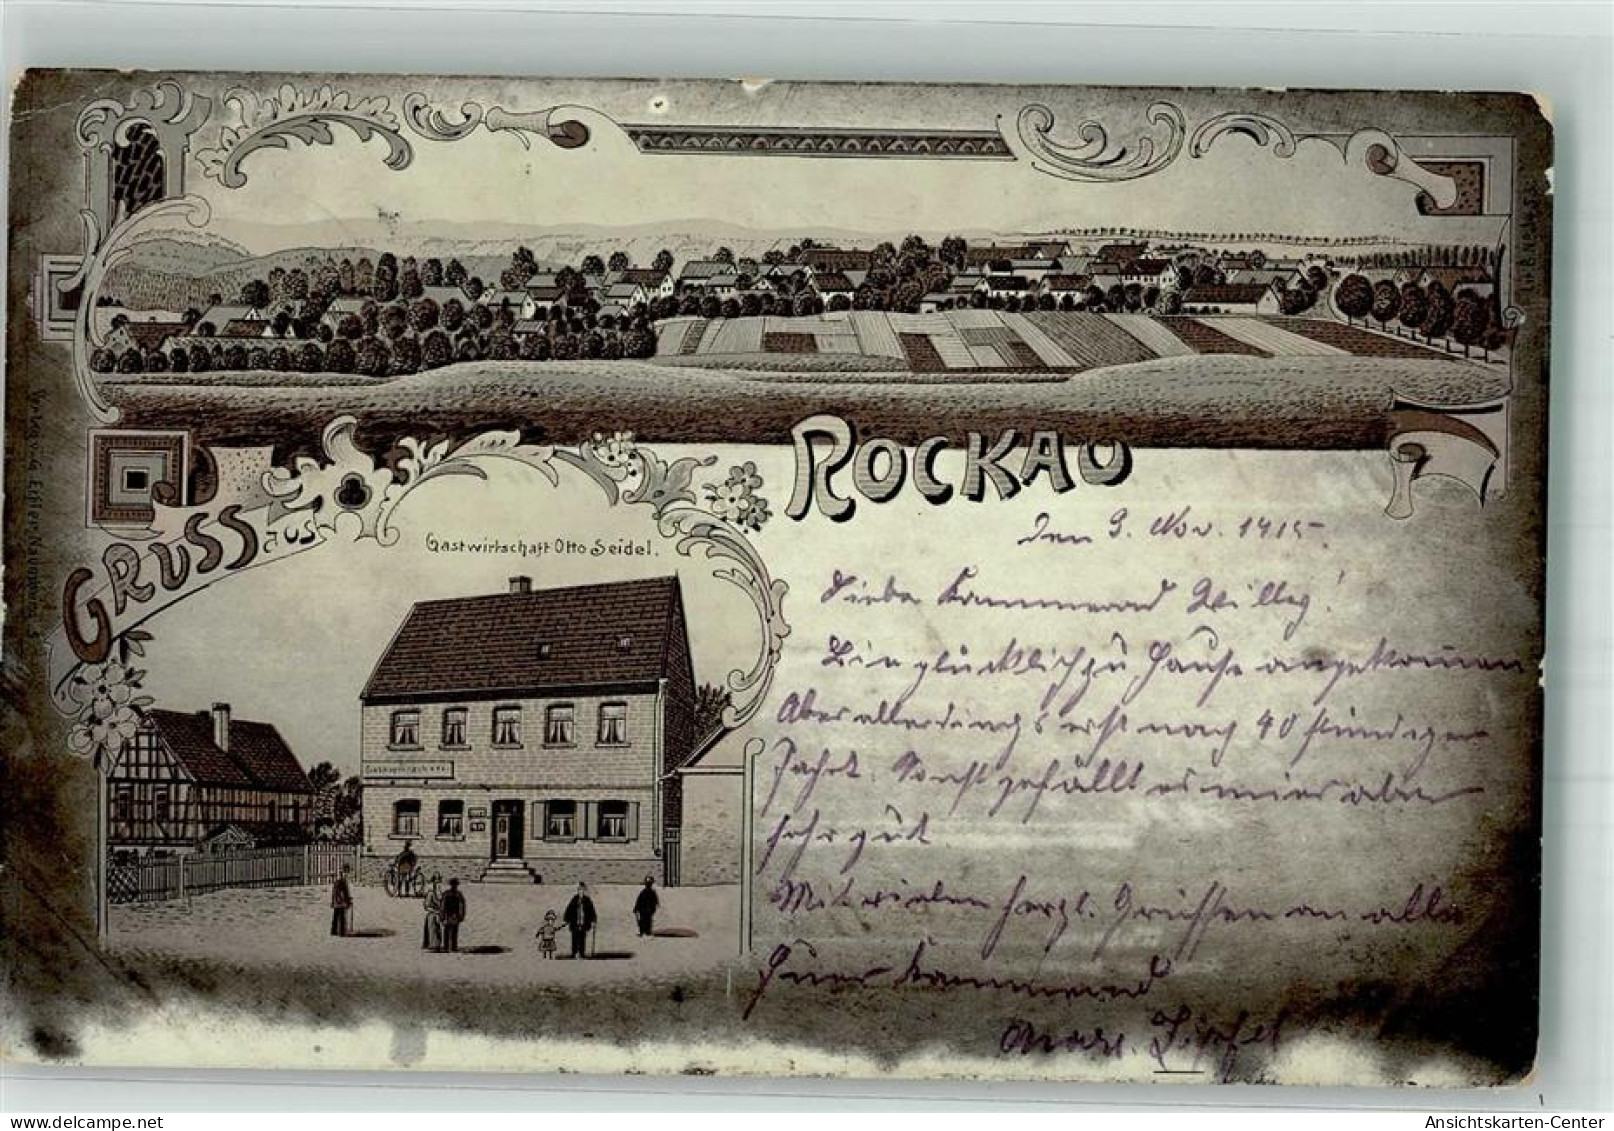 GRUSS AUS
ROCKAU
Gastwirtschaft Otto Seidel.
Gastwirtschaft.
den 9. Nov. 1915.
Lieber Kammerad Willy!
Bin glücklich zu Hause angekommen
Aber allerdings erst nach 40 stündiger
Fahrt. Sonst gefällt es mir aber
sehr gut
Mit vielen herzl. Grüssen an alle
Euer Kammerad
Ansichtskarten-Center